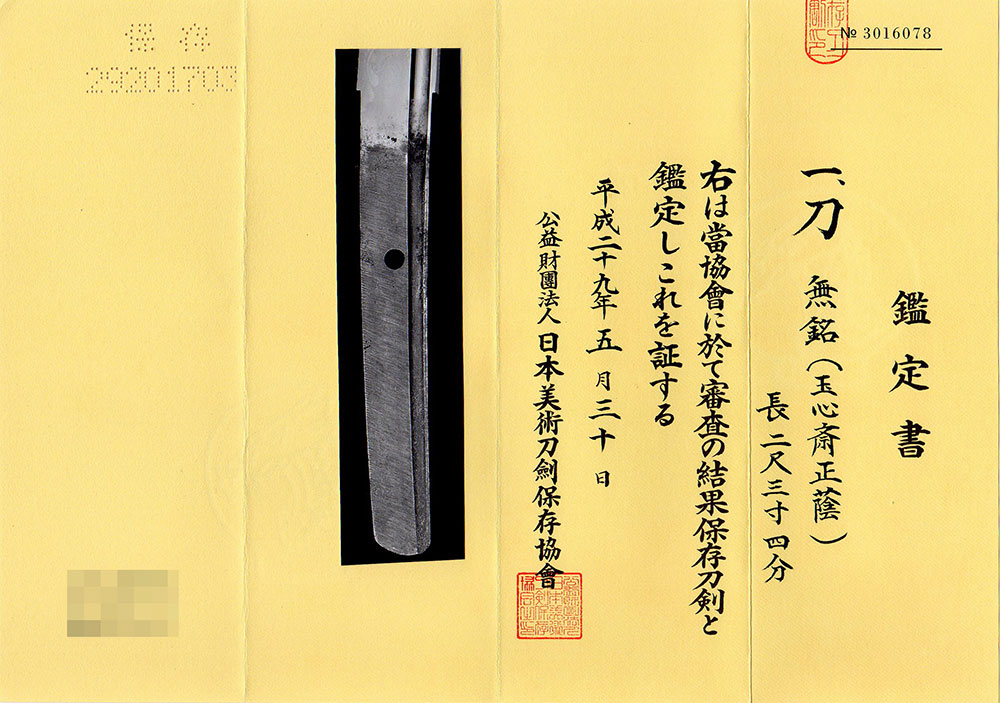 № 3016078
鑑定書
一、刀 無銘(玉心斎正蔭)
長二尺三寸四分
右は當協會に於て審査の結果保存刀剣と
鑑定しこれを証する
平成二十九年五月三十日
公益財團法人日本美術刀劍保存協會
保存
29201703